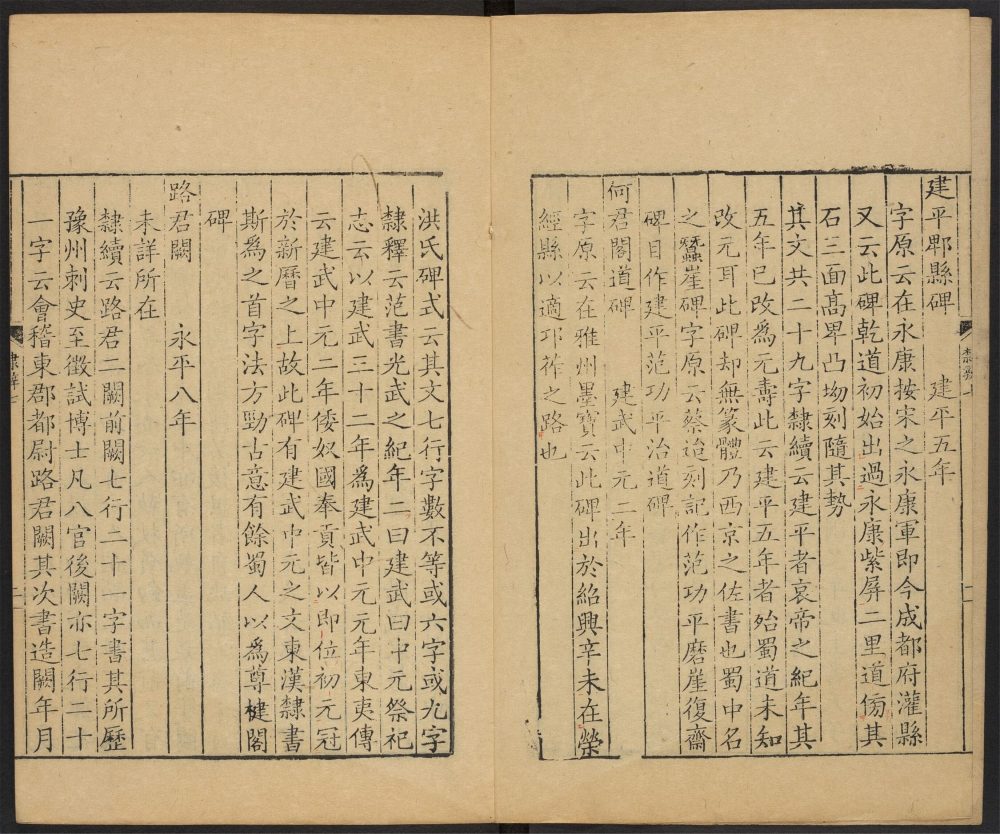 建平郫縣碑　建平五年
字原云在永康按宋之永康軍即今成都府灌縣
又云此碑乾道初始出過永康紫屏二里道傍其
石三面髙卑凸坳刻隨其勢
其文共二十九字隸續云建平者哀帝之紀年其
五年已改為元壽此云建平五年者殆蜀道未知
改元耳此碑却無篆體乃西京之佐書也蜀中名
之蠶崖碑字原云蔡迨刻記作范功平磨崖復齋
碑目作建平范功平治道碑
何君閣道碑　建武中元二年
字原云在雅州墨寶云此碑出於紹興辛未在榮
經縣以適邛莋之路也
洪氏碑式云其文七行字數不等或六字或九字
隸釋云范書光武之紀年二曰建武曰中元祭祀
志云以建武三十二年爲建武中元元年東夷傳
云建武中元二年倭奴國奉貢皆以即位初元冠
於新曆之上故此碑有建武中元之文東漢隸書
斯爲之首字法方勁古意有餘蜀人以爲尊楗閣
碑
路君闕　永平八年
未詳所在
隸續云路君二闕前闕七行二十一字書其所歷
豫州刺史至徵試博士凡八官後闕亦七行二十
一字云會稽東郡都尉路君闕其次書造闕年月